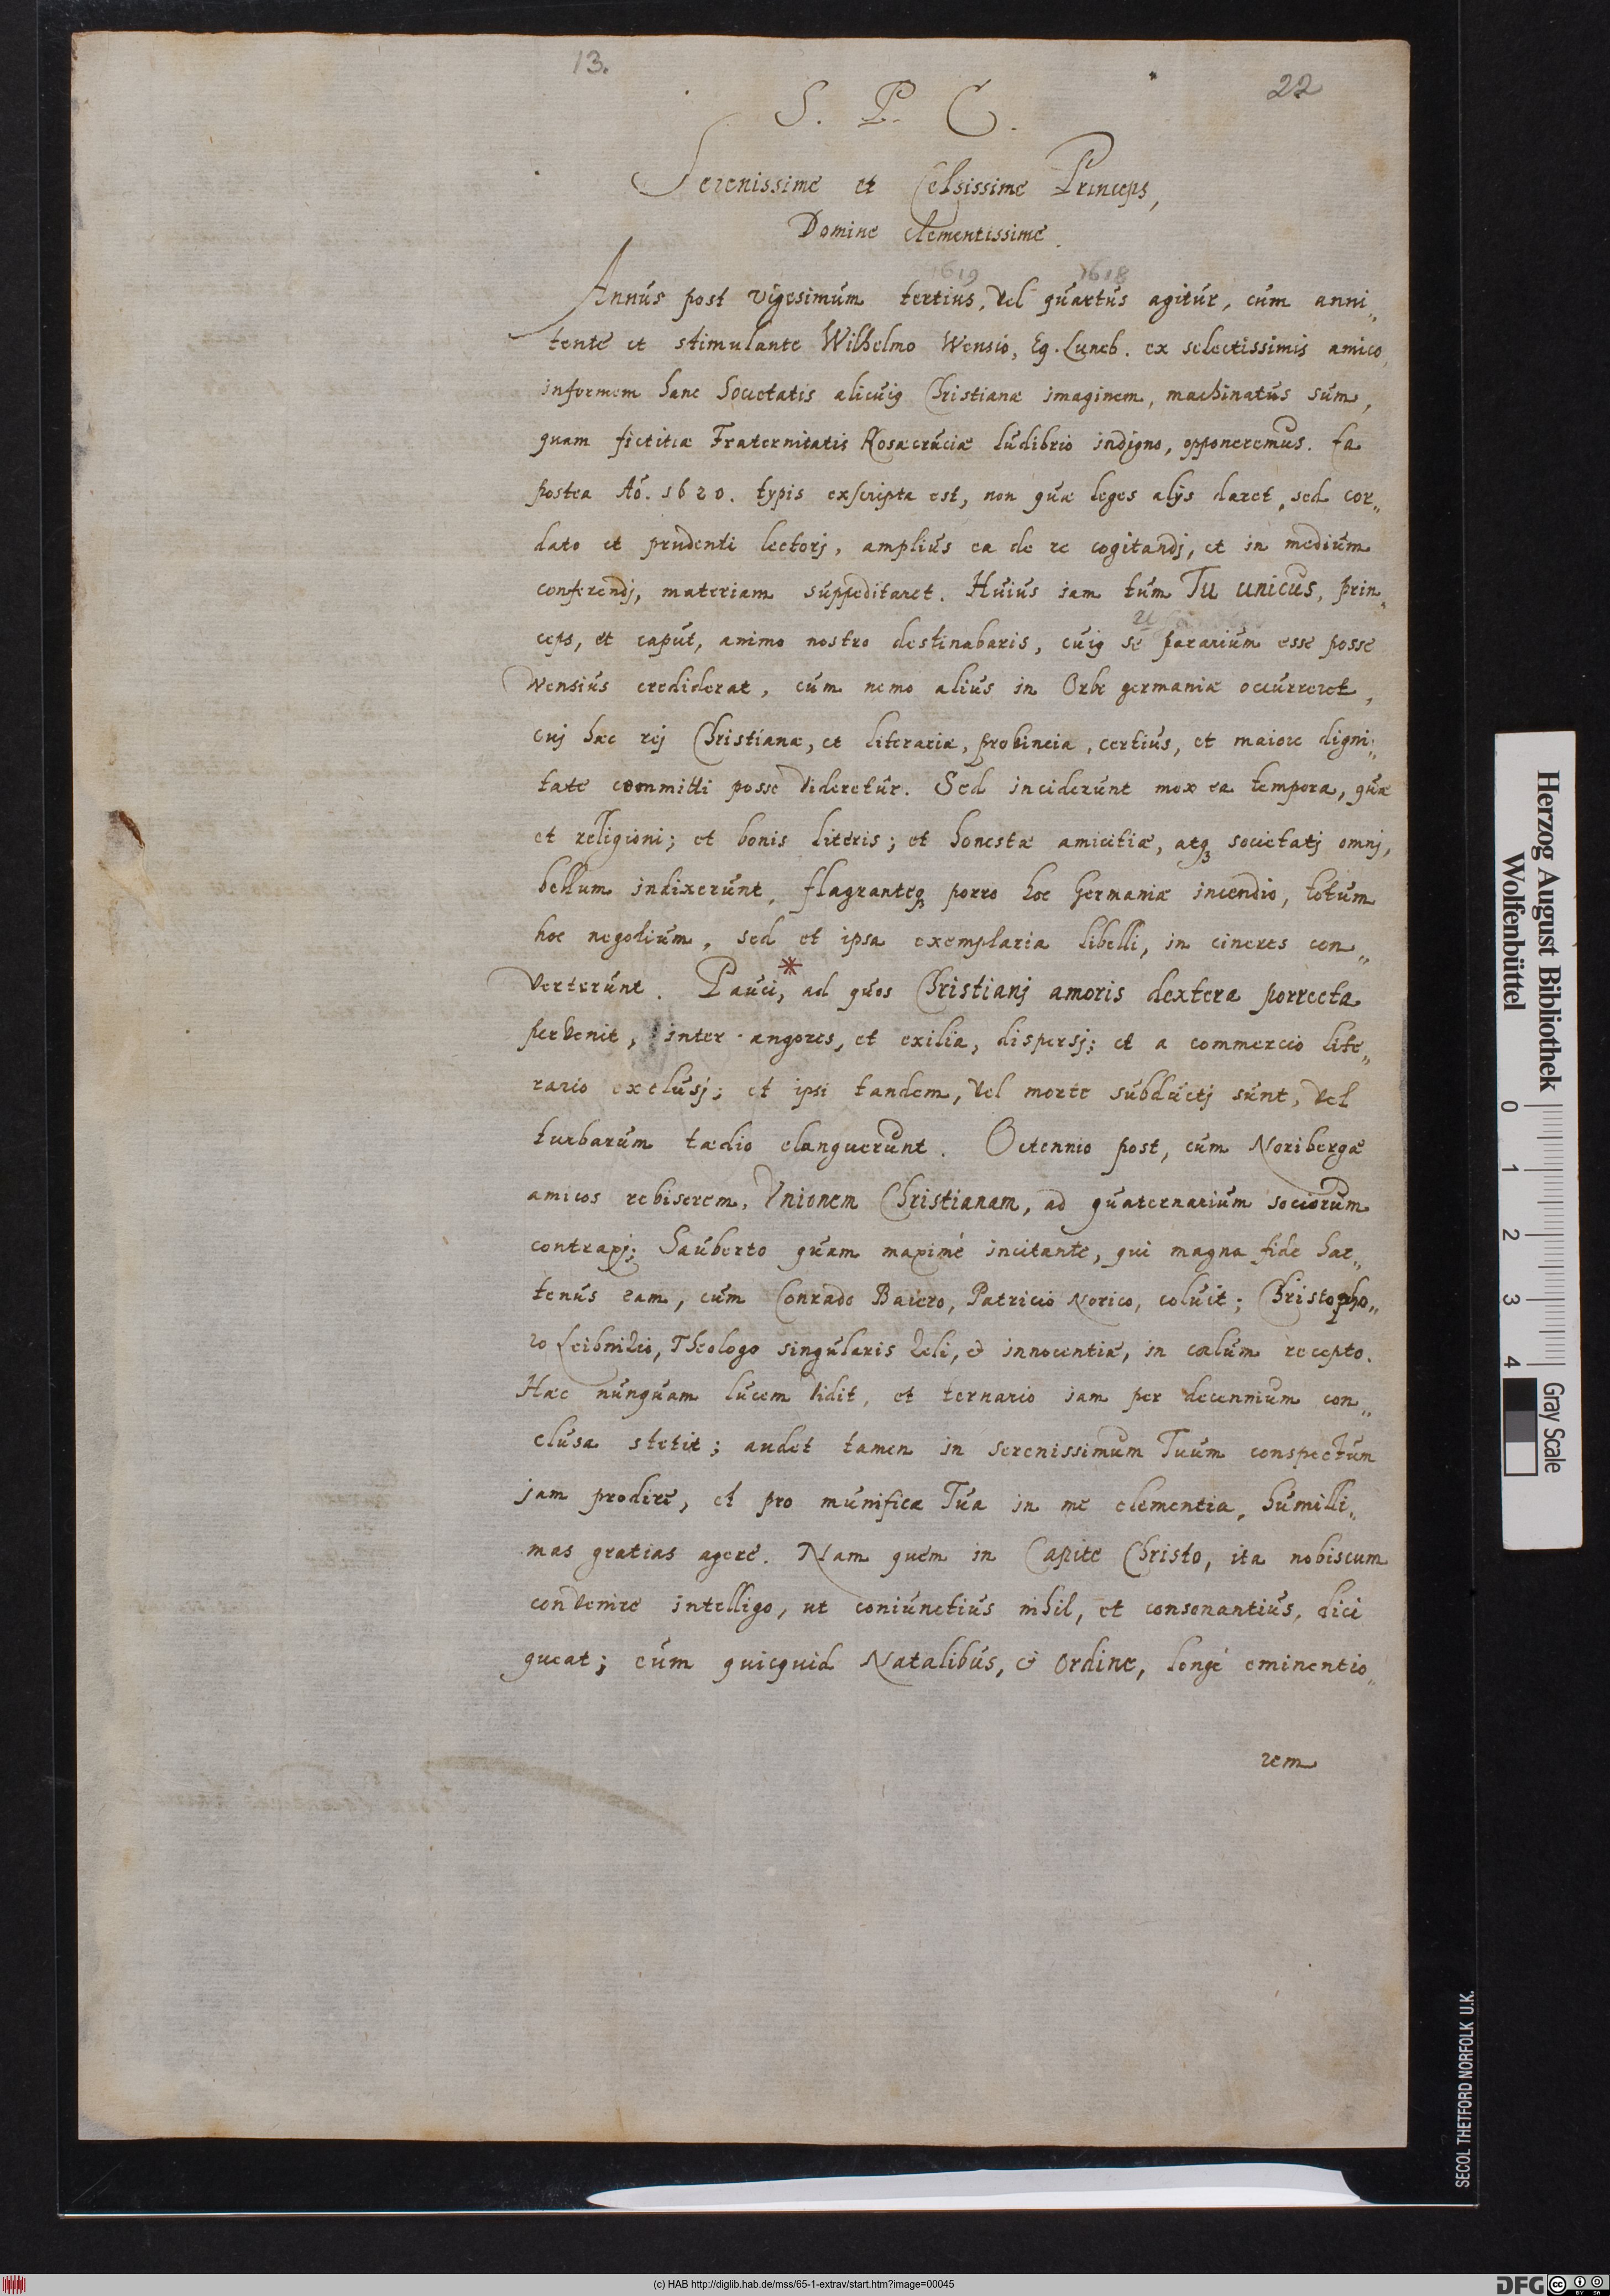 13.
22
S. P. C.
Serenissime et Celsissime Princeps,
Domine Clementissime.
1619 1618
Annus post vigesimum tertius, vel quartus agitur, cum anni„
tente et stimulante Wilhelmo Wensio, Eq. Luneb. ex selectissimis amico,
informem hanc Societatis alicuiq Christianæ imaginem, machinatus sum,
quam fictitiæ Fraternitatis Rosæcruciæ ludibrio indigno, opponeremus. Ea
postea Aõ. 1620. typis exscripta est, non quæ leges alijs daret, sed cor„
dato et prudenti lectorj, amplius ea de re cogitandj, et in medium
conferendj, materiam suppeditaret. Huius iam tum Tu unicus, prin„
ceps, et caput, animo nostro destinabaris, cuiq se pararium esse posse
Wensius crediderat, cum nemo alius in Orbe germaniæ occurreret,
cuj hæc rej Christianæ, et literariæ, provincia, certius, et maiore digni„
tate committi posse videretur. Sed inciderunt mox ea tempora, quæ
et religioni; et bonis literis; et honestæ amicitiæ, atq3 societatj omnj,
bellum indixerunt, flagranteq3 porro hoc Germaniæ incendio, totum
hoc negotium, sed et ipsa exemplaria libelli, in cineres con„
verterunt. Pauci, * ad quos Christianj amoris dextera porrecta
pervenit, inter angores, et exilia, dispersj; et a commercio lite„
rario exclusj; et ipsi tandem, vel morte subductj sunt, vel
turbarum tædio elanguerunt. Octennio post, cum Noribergæ
amicos reviserem, Vnionem Christianam, ad quaternarium sociorum
contraxj; Sauberto quam maximè incitante, qui magna fide hac„
tenus eam, cum Conrado Baiero, Patricio Norico, coluit; Christopho„
ro Leibnizio, Theologo singularis zeli, & innocentiæ, in cœlum recepto.
Hæc nunquam lucem vidit, et ternario iam per decennium con„
clusa stetit; audet tamen in serenissimum Tuum conspectum
jam prodire, et pro munifica Tua in me clementia, humilli„
mas gratias agere. Nam quem in Capite Christo, ita nobiscum
convenire intelligo, ut coniunctius nihil, et consonantius, dici
queat; cum quicquid Natalibus, & Ordine, longè eminentio„
rem
Herzog August Bibliothek
Wolfenbüttel
0 1 2 3 4
Gray Scale
SECOL THETFORD NORFOLK U.K.
(c) HAB http://diglib.hab.de/mss/65-1-extrav/start.htm?image=00045
DFG